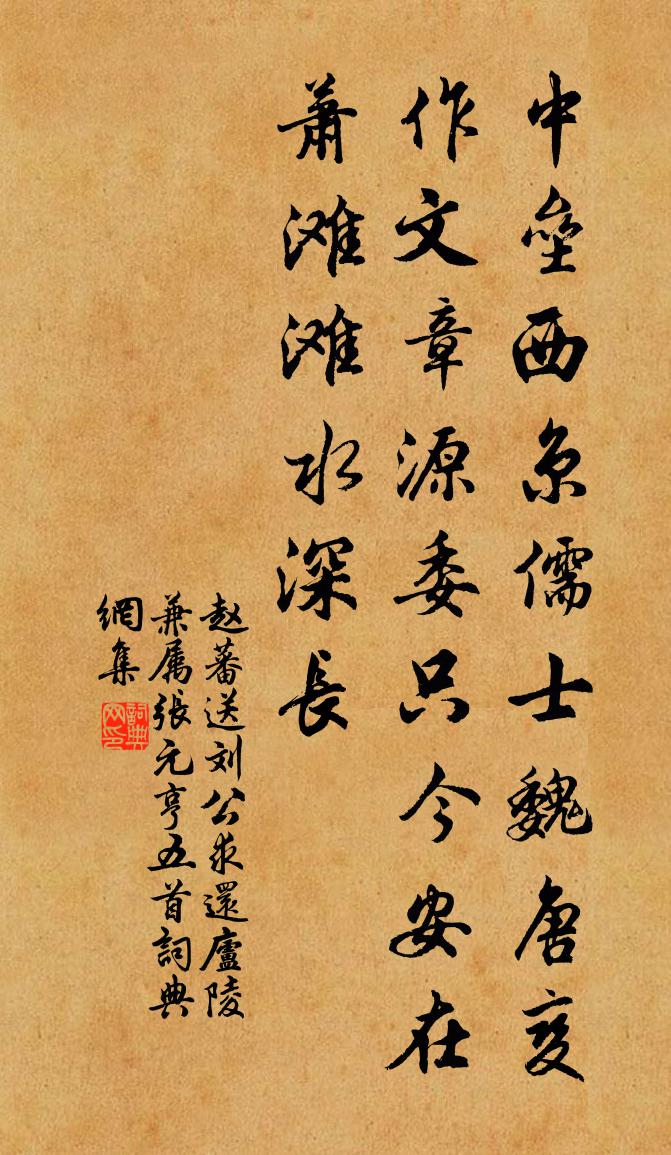 中垒西京儒士魏唐变
作文章源委只今安在
萧滩滩水深長
赵蕃送刘公求還廬陵
兼属張元亨五首詞典
網集
詞典
网印